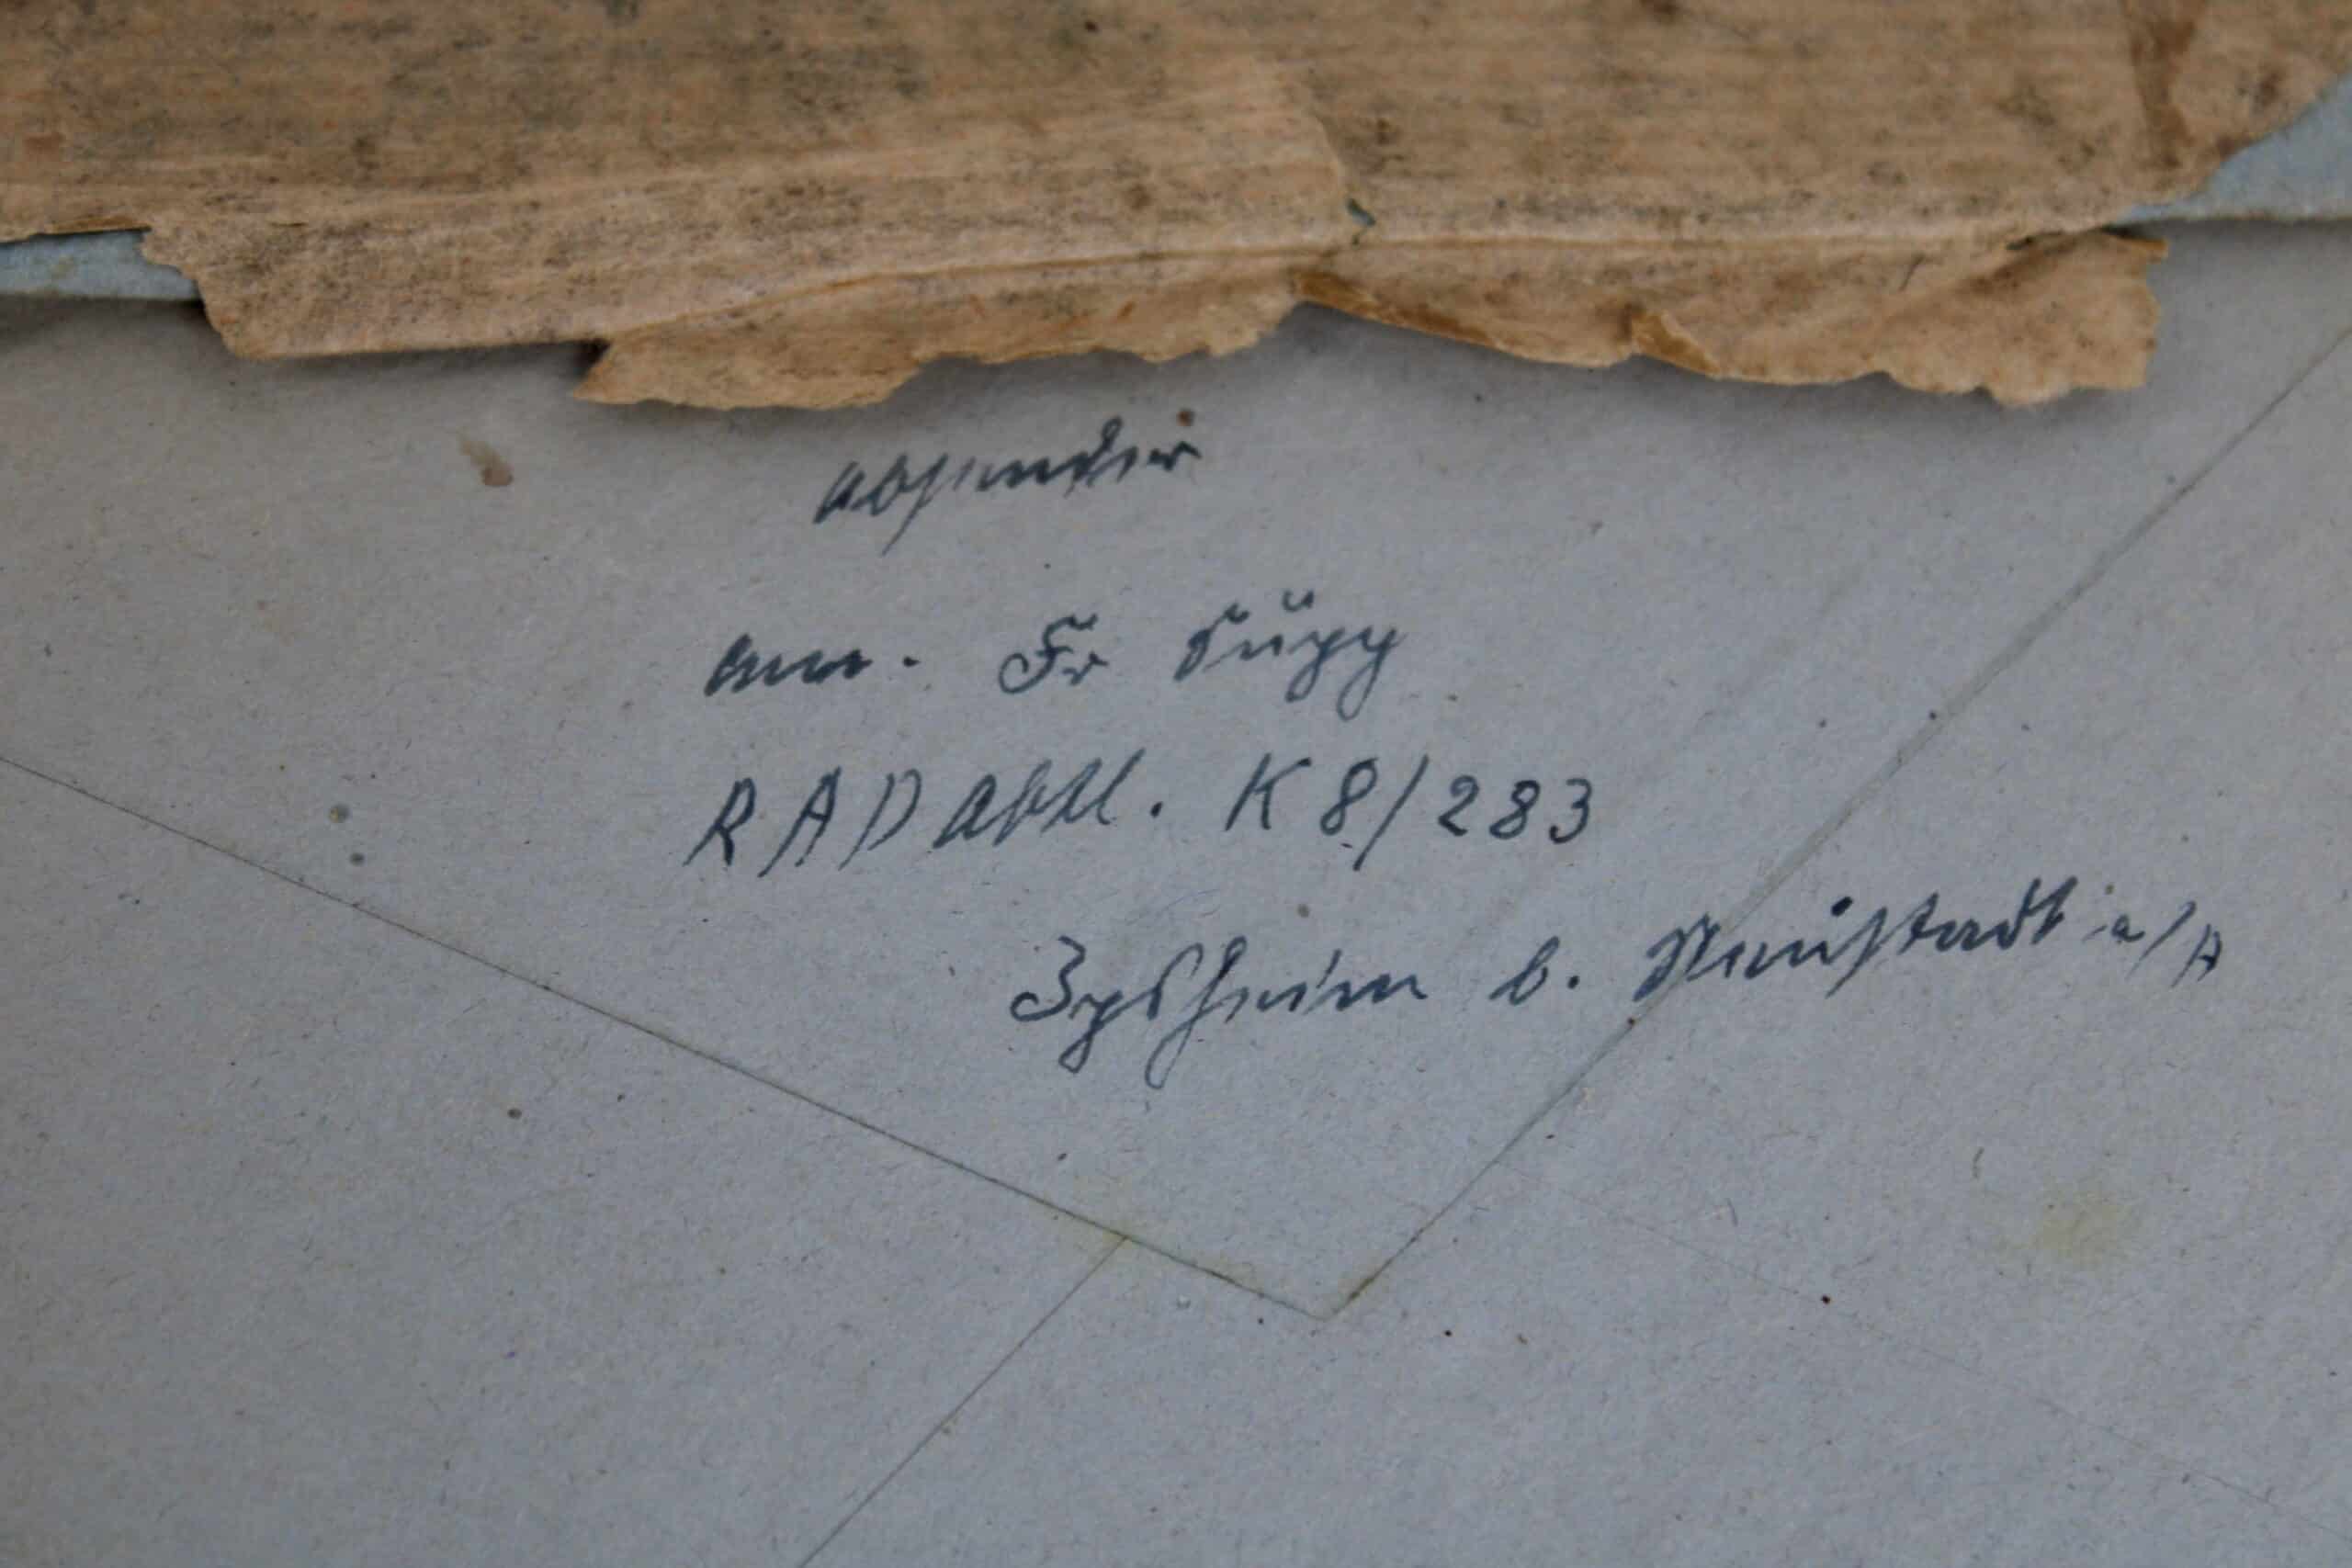 Absender
Arm. Fr
RAD Abtl. K 8/283
Ipsheim b. Neustadt a/A